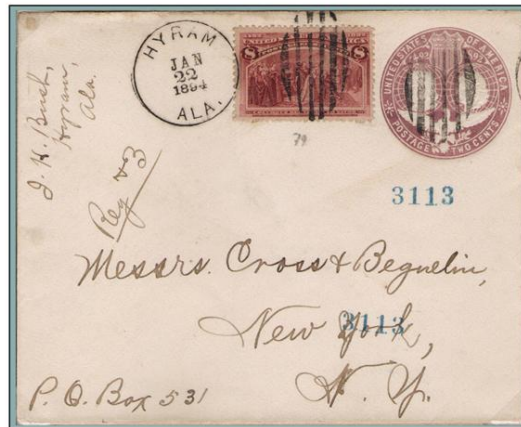 J. H. Bush,
Hyram,
Ala.
HYRAM
JAN
22
1894
ALA.
UNITED STATES OF AMERICA
POSTAGE TWO CENTS
79
Reg
3113
Messrs. Cross & Beguelin,
New York,
3113
N. Y.
P. O. Box 531